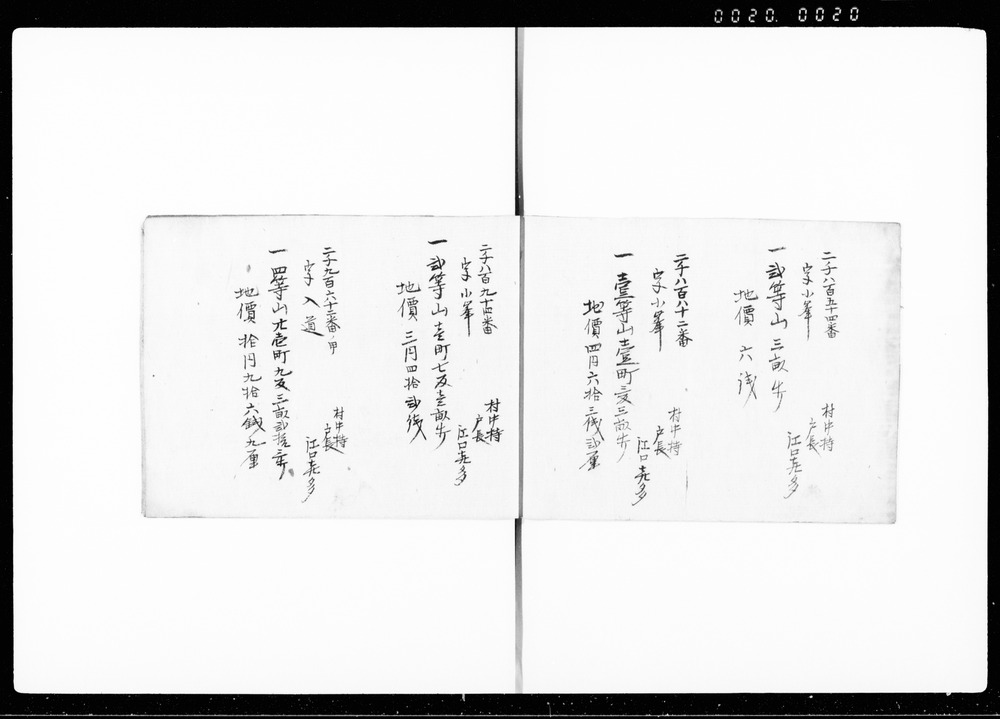 0020. 0020
二千八百五十四番
字小峯
一 弐等山 三畝歩
村中持
戸長
江口喜多
地價 六銭
二千八百八十二番
字小峯
一 壹等山壹町三反三畝歩
村中持
戸長
江口喜多
地價四円六拾三銭弐厘
二千八百九十四番
字小峯
一 弐等山壹町七反壹畝歩
村中持
戸長
江口喜多
地價 三円四拾弐銭
二千九百六十二番ノ甲
字入道
一 四等山 壱町九反三畝弐拾歩
村中持
戸長
江口喜多
地價 拾円九拾六銭九厘